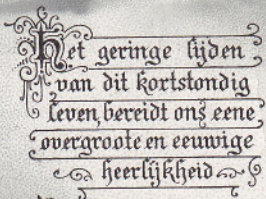 Het geringe lijden
van dit kortstondig
leven, bereidt ons eene
overgroote en eeuwige
heerlijkheid